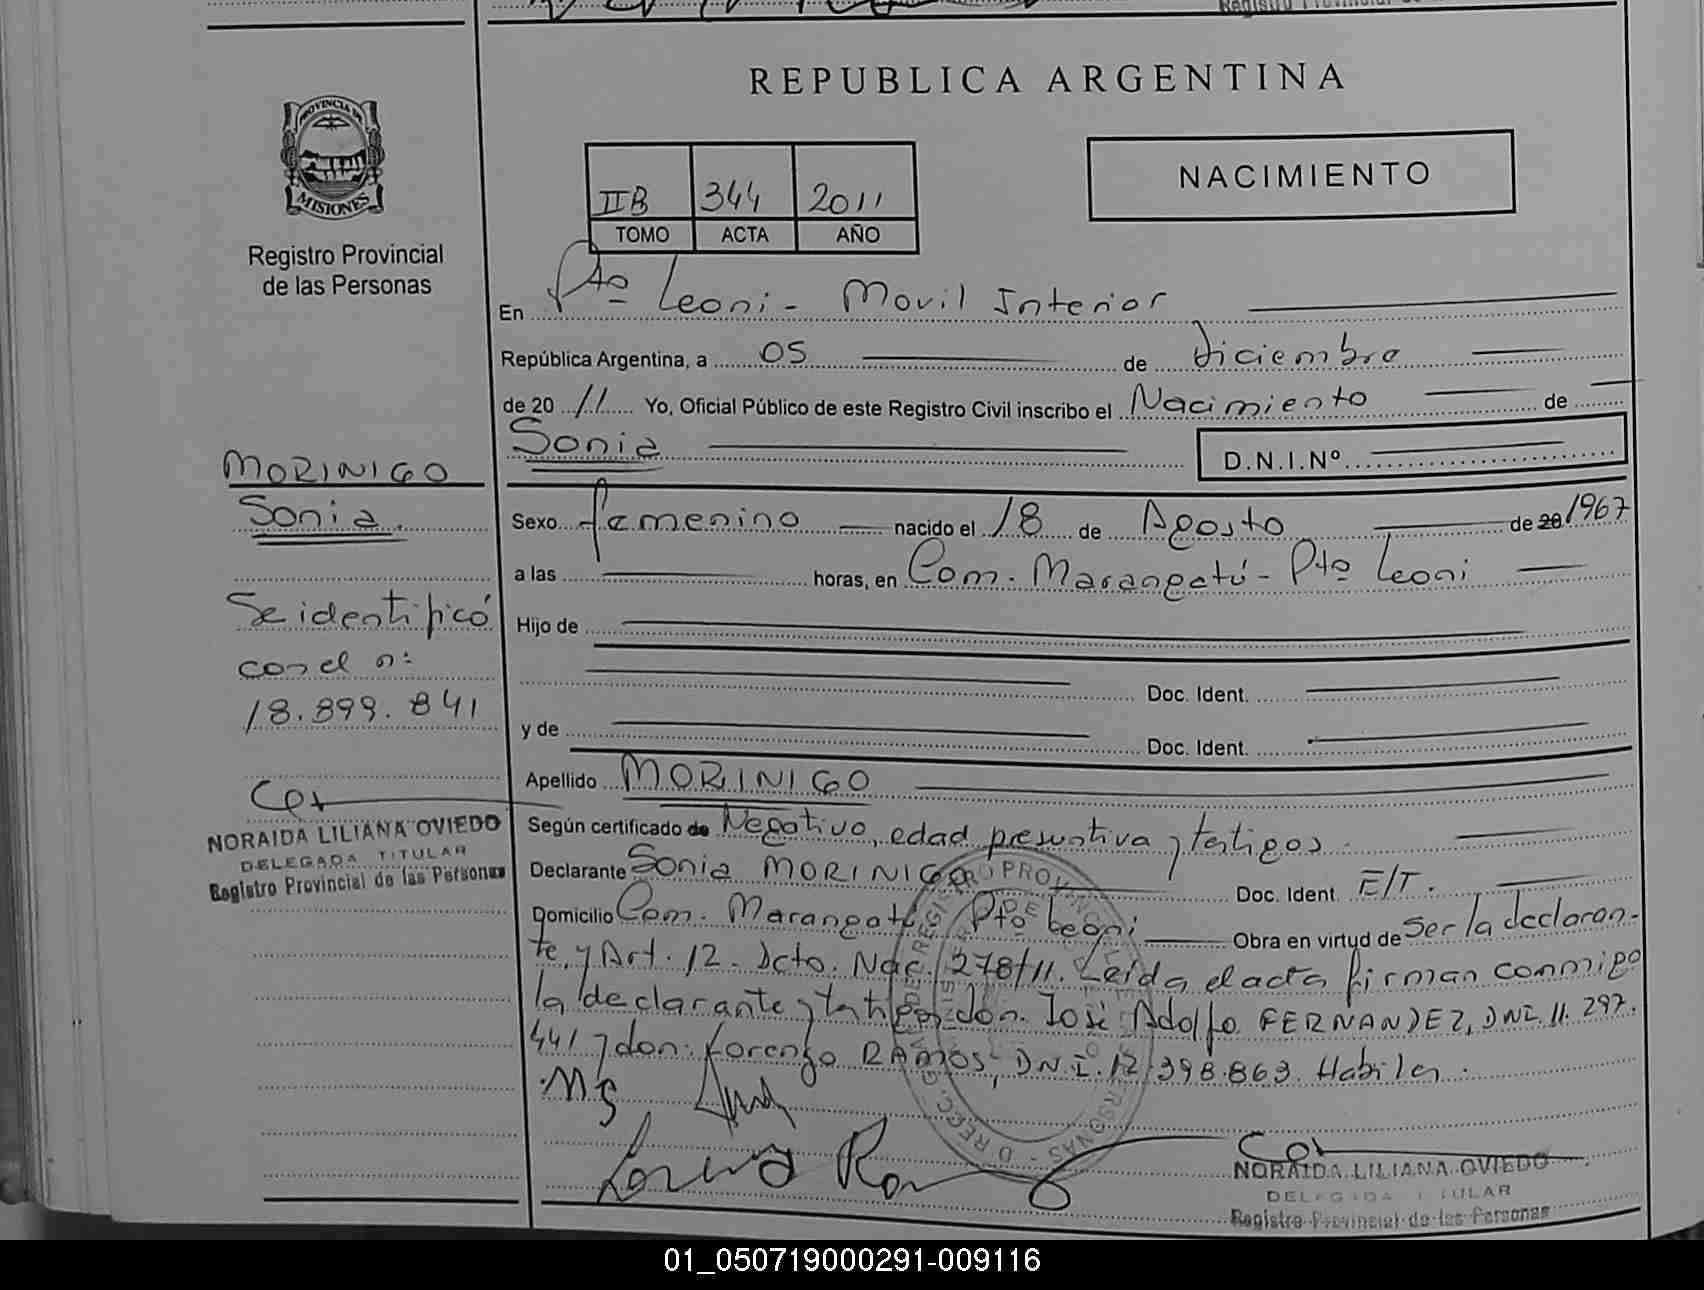 REPUBLICA ARGENTINA
PROVINCIA DE
MISIONES
Registro Provincial
de las Personas
IIB 344 2011
TOMO ACTA AÑO
NACIMIENTO
En Pto Leoni - Movil Interior
República Argentina, a 05 de Diciembre
de 20 11 Yo, Oficial Público de este Registro Civil inscribo el Nacimiento de
Sonia D.N.I.Nº
MORINIGO
Sonia.
Se identificó
con el n:
18.899.841
NORAIDA LILIANA OVIEDO
DELEGADA TITULAR
Registro Provincial de las Personas
Sexo femenino nacido el 18 de Agosto de 20 1967
a las horas, en Com. Marangatú - Pto Leoni
Hijo de
Doc. Ident.
y de Doc. Ident.
Apellido MORINIGO
Según certificado de Negativo, edad presuntiva y testigos.
Declarante Sonia MORINIGO Doc. Ident. E/T.
Domicilio Com. Marangatú Pto Leoni Obra en virtud de Ser la declaran-
te, y Art. 12. Dcto. Nac. 278/11. Leída el acta firman conmigo
la declarante y testigos don. José Adolfo FERNANDEZ, DNI. 11.297.
441 y don: Lorenzo RAMOS, DN.I. 12.398.863. Habiles.
MS
Lorenzo Ramos
NORAIDA LILIANA OVIEDO
DELEGADA TITULAR
Registro Provincial de las Personas
01_050719000291-009116